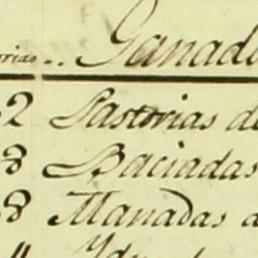 rias.. Ganado
2 Pastorias de
8 Baciadas
8 Manadas d
" Ydn